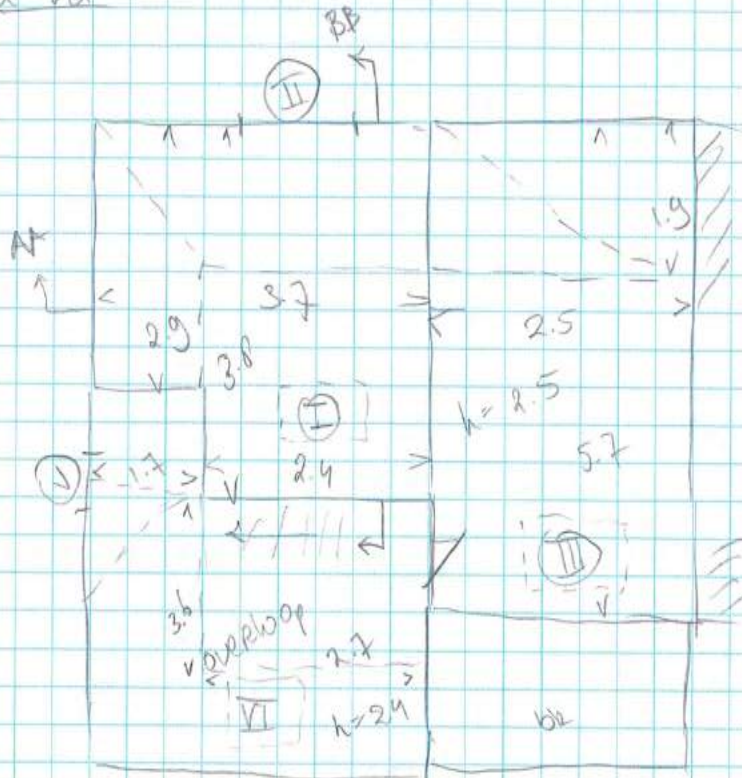 BB
II
1.9
3.7
2.5
2.9
3.8
h = 2.5
I
5.7
V
1.7
2.4
III
3.6
overloop
2.7
VI
h=24